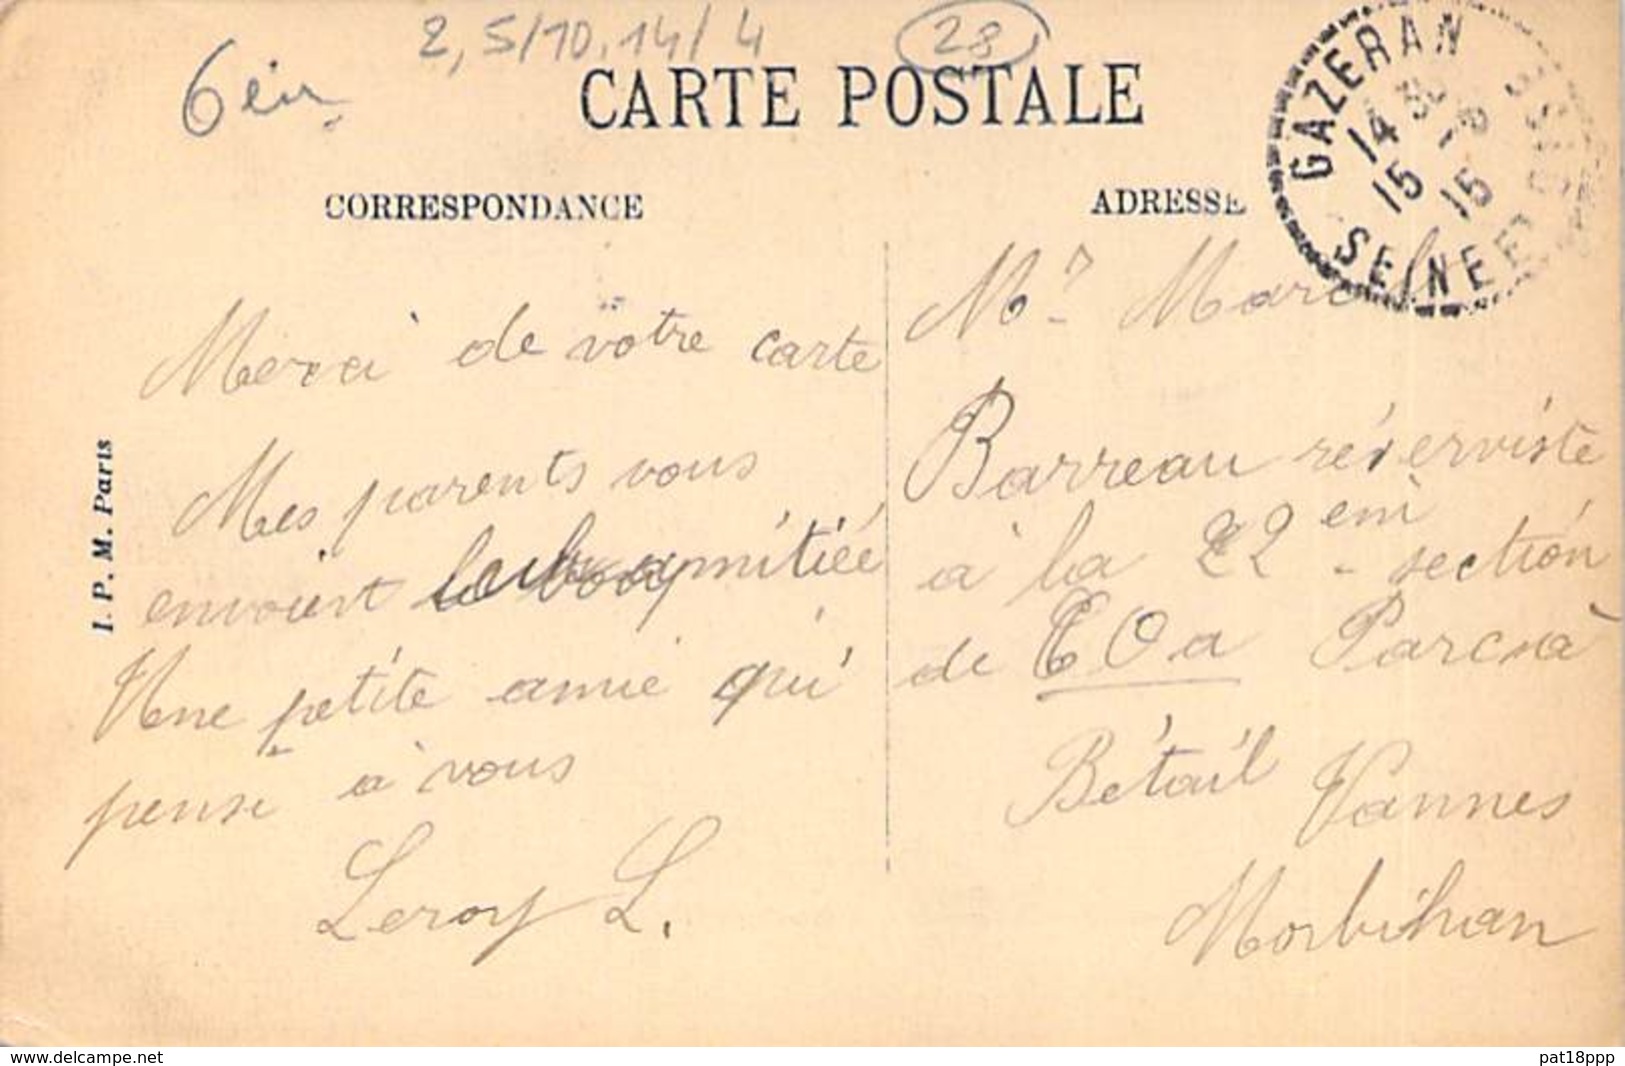 2,5/10.14/4
28
6èm
CARTE POSTALE
GAZERAN
14 30
15 -8
15
SEINE ET OISE
CORRESPONDANCE
ADRESSE
Merci de votre carte
Mes parents vous
envoient amitiéé
Une petite amie qui
pense à vous
Leroy L.
Mr Marcel
Barreau réserviste
à la 22 em section
de C O a Parc à
Bétail Vannes
Morbihan
I. P. M. Paris
www.delcampe.net
pat18ppp